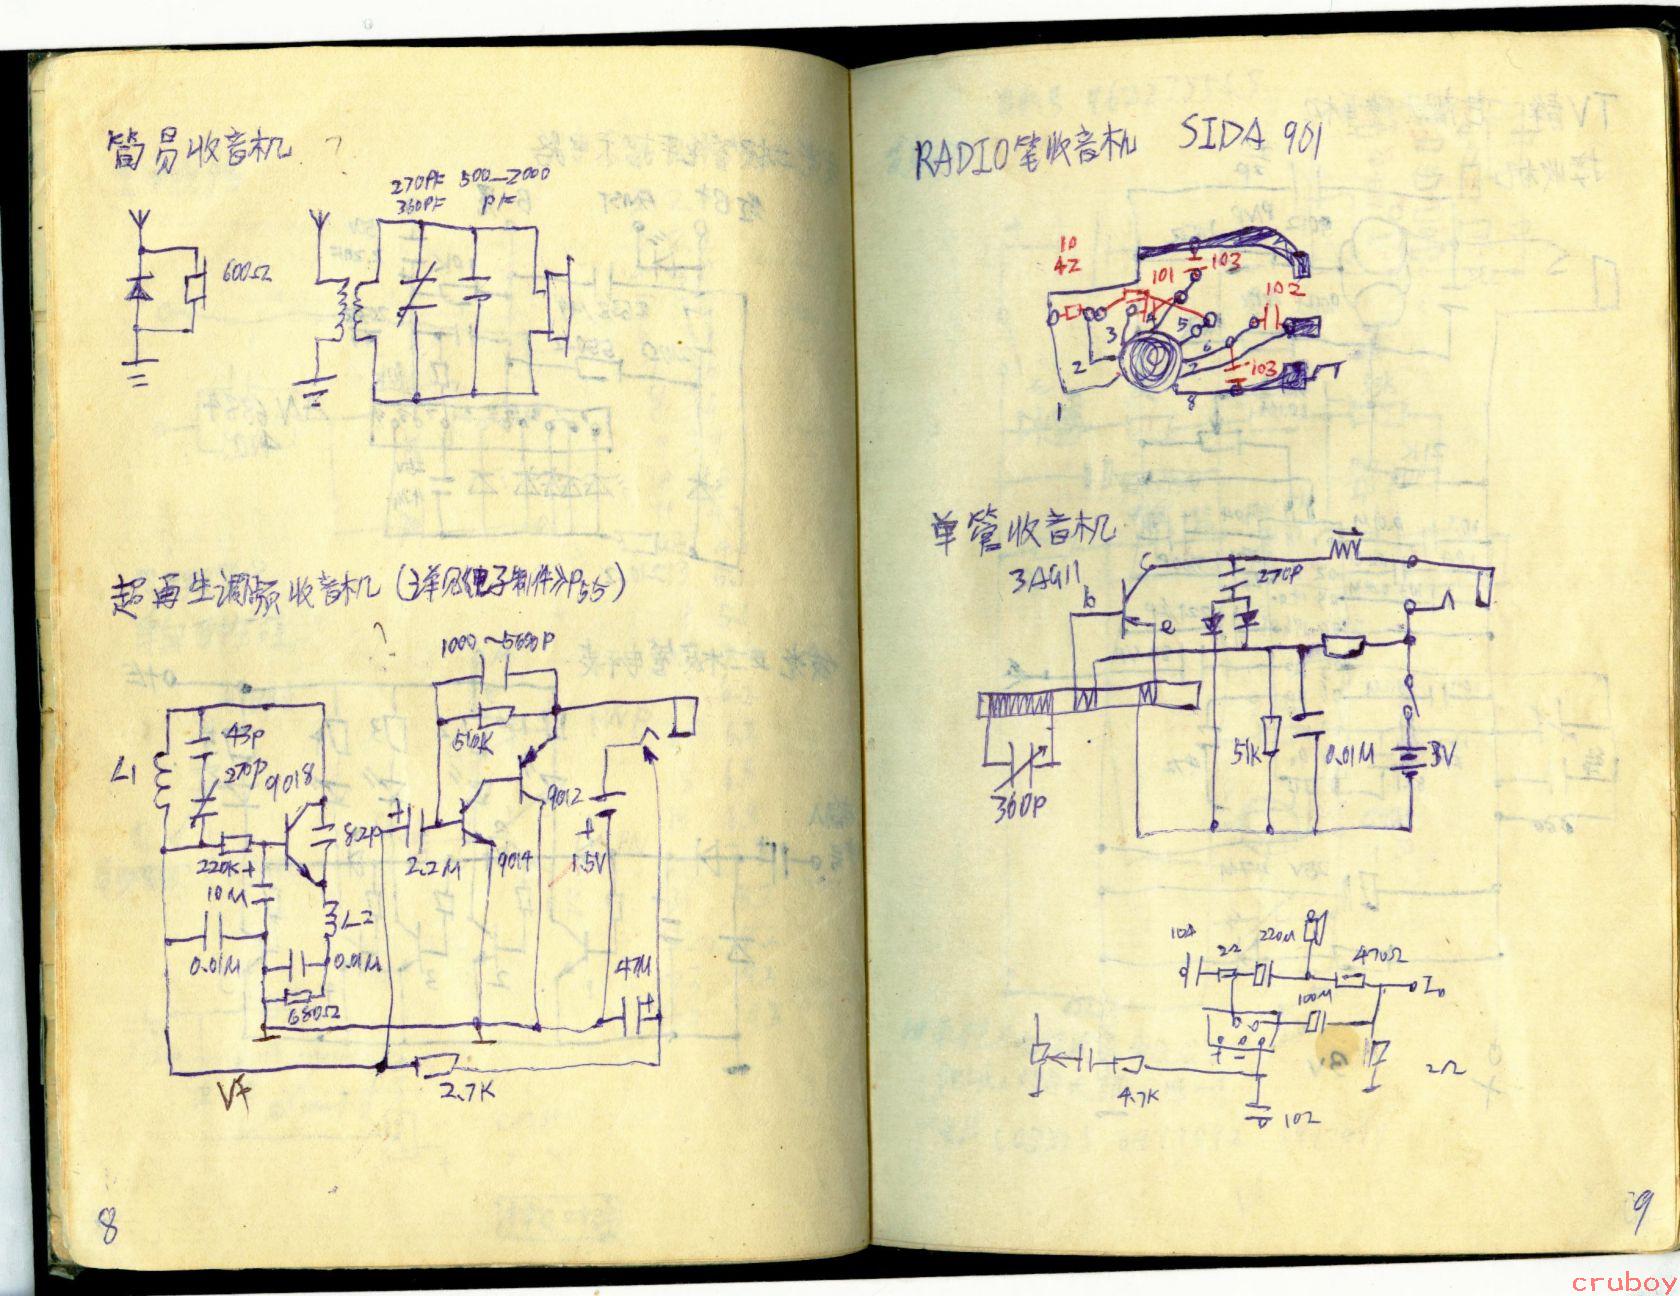 简易收音机 ?
270PF 500—2000
360PF PF
600Ω
超再生调频收音机 (详见《电子制作》P55)
?
1000~5600P
510K
43P
L1
270P
9018
82P
220K
+
10M
+
2.2M
9014
9012
+
1.5V
L2
0.01M
0.01M
680Ω
47M
+
2.7K
8
RADIO笔收音机 SIDA 901
10
42
101
103
102
103
1
2
3
4
5
6
7
8
单管收音机
3AG11
b
c
e
270P
360P
51K
0.01M
3V
104
2Ω
220M
470Ω
100M
+
-
4.7K
2Ω
102
9
cruboy